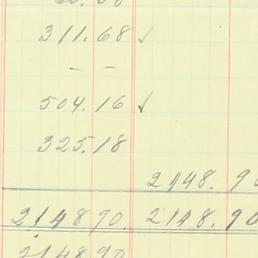 311.68 ✓
- -
504.16 ✓
325.18
2148.90
214890. 2148.90
214890